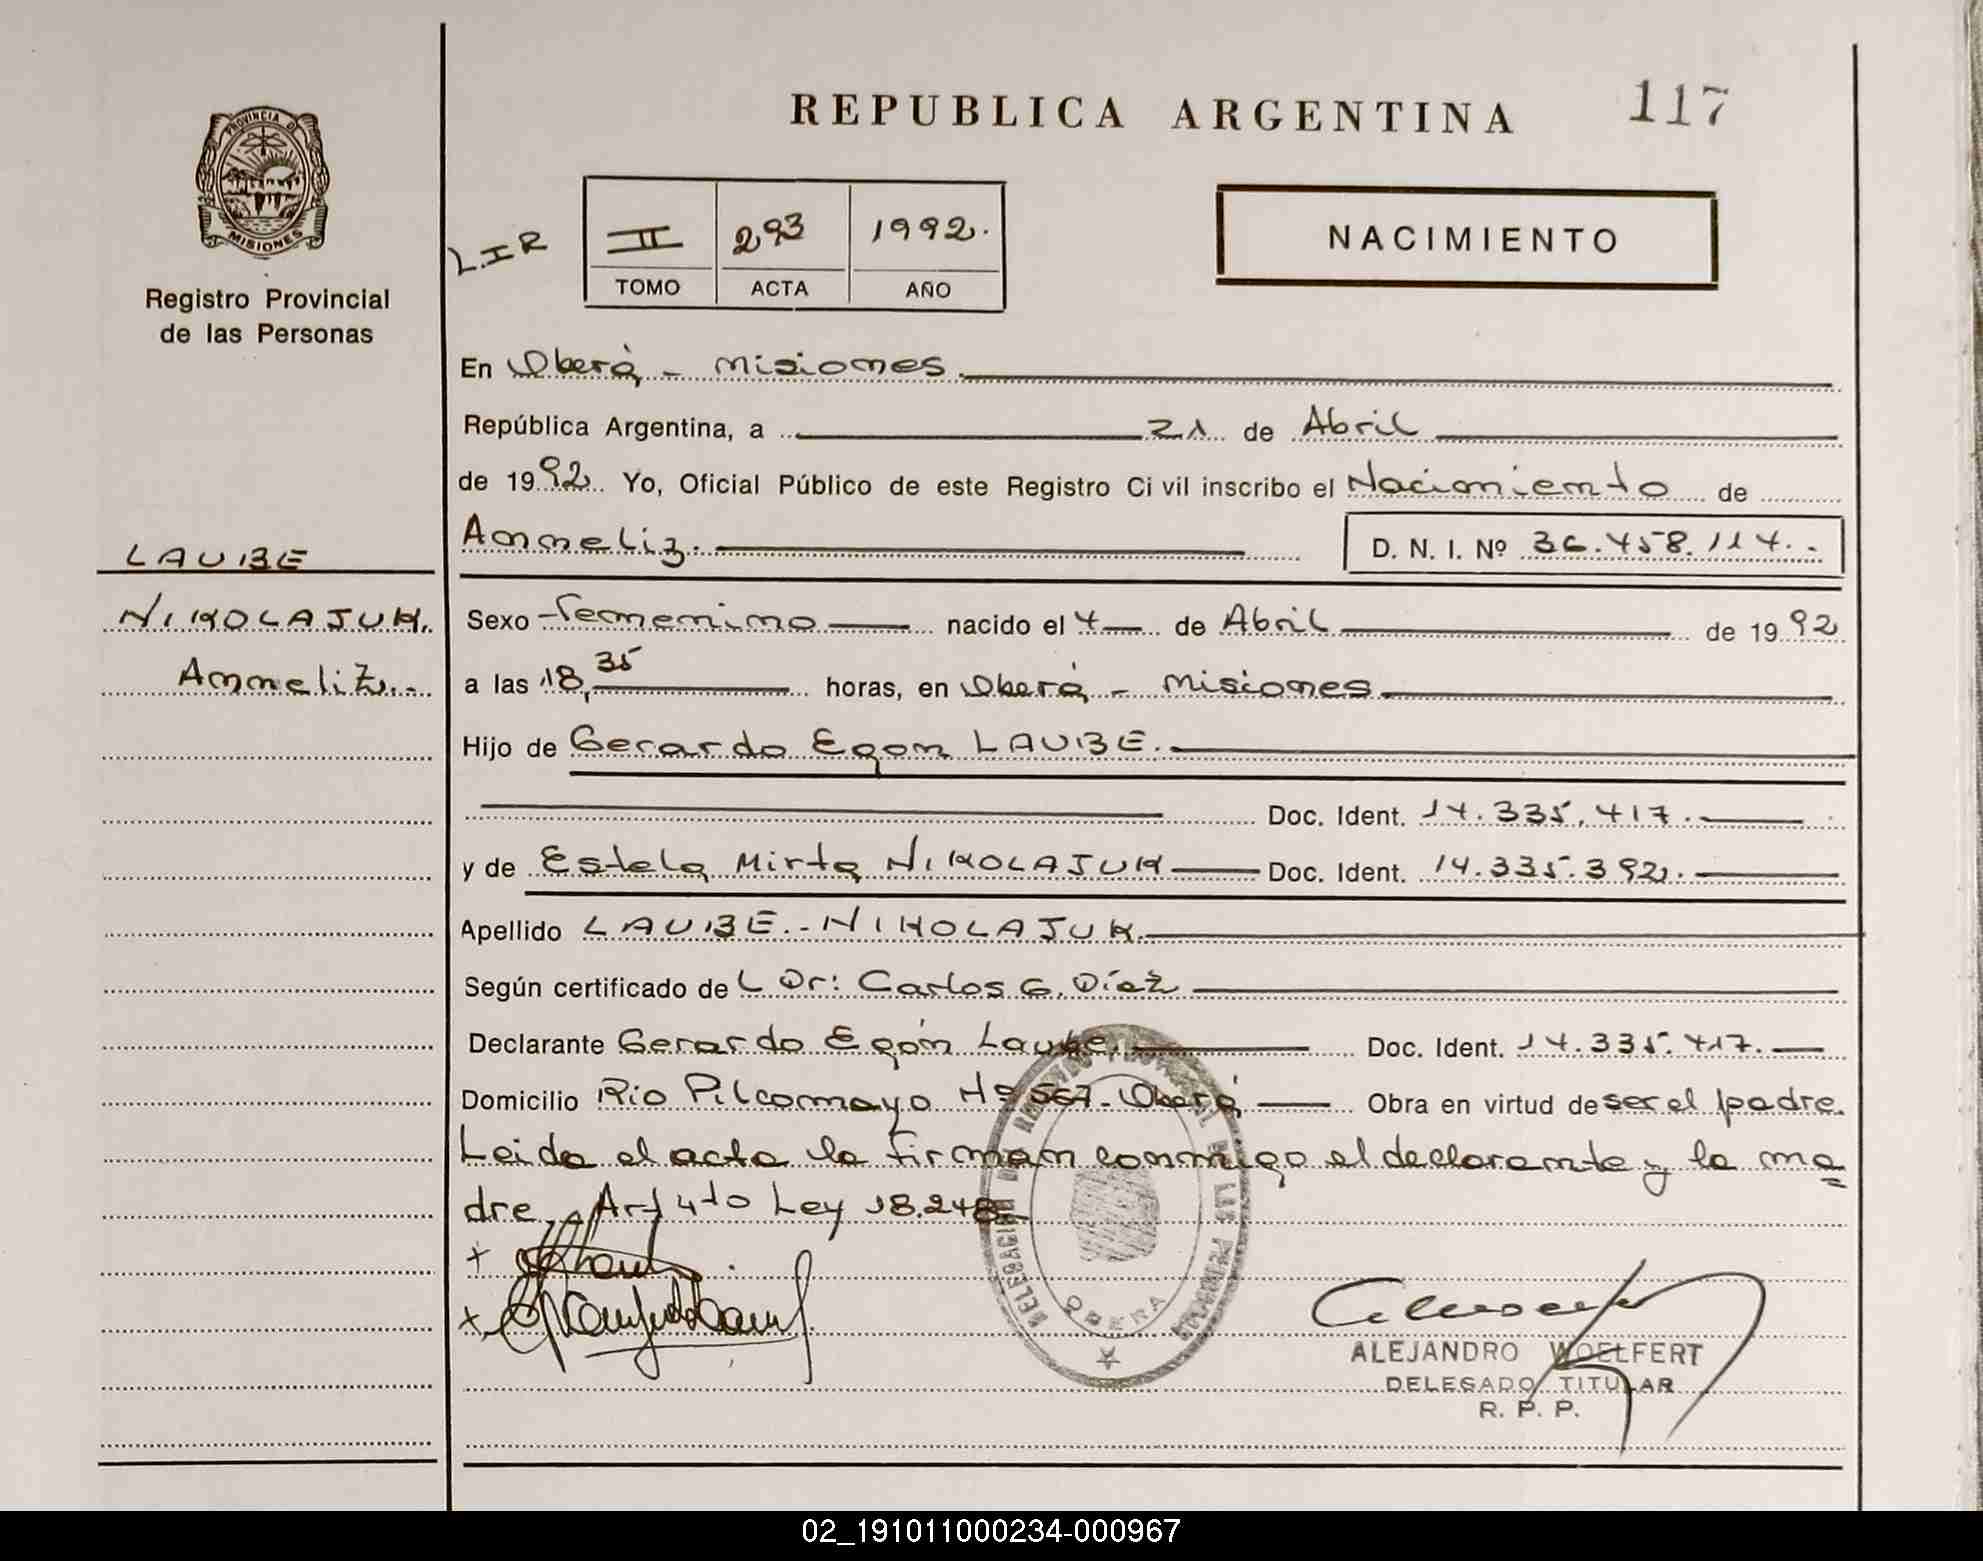 REPUBLICA ARGENTINA 117
PROVINCIA DE
MISIONES
Registro Provincial
de las Personas
L.I R
II 293 1992.
TOMO ACTA AÑO
NACIMIENTO
En Oberá - Misiones.
República Argentina, a 21 de Abril
de 1992. Yo, Oficial Público de este Registro Ci vil inscribo el Nacimiento de
Anneliz. D. N. I. Nº 36.458.114.-
LAUBE
NIKOLAJUK.
Anneliz.-
Sexo Femenino nacido el 4 de Abril de 1992
a las 18,35 horas, en Oberá - Misiones
Hijo de Gerardo Egon LAUBE.
Doc. Ident. 14.335.417.
y de Estela Mirta NIKOLAJUK Doc. Ident. 14.335.392.
Apellido LAUBE.-NIKOLAJUK.
Según certificado de L Dr: Carlos G. Díaz
Declarante Gerardo Egón Laube. Doc. Ident. 14.335.417.
Domicilio Rio Pilcomayo Nº 567-Oberá Obra en virtud de ser el padre.
Leida el acta la firman conmigo el declarante y la ma
dre, Art 4to Ley 18.248-
DELEGACION DEL REGISTRO PROVINCIAL DE LAS PERSONAS
OBERA
ALEJANDRO WOELFERT
DELEGADO TITULAR
R. P. P.
02_191011000234-000967